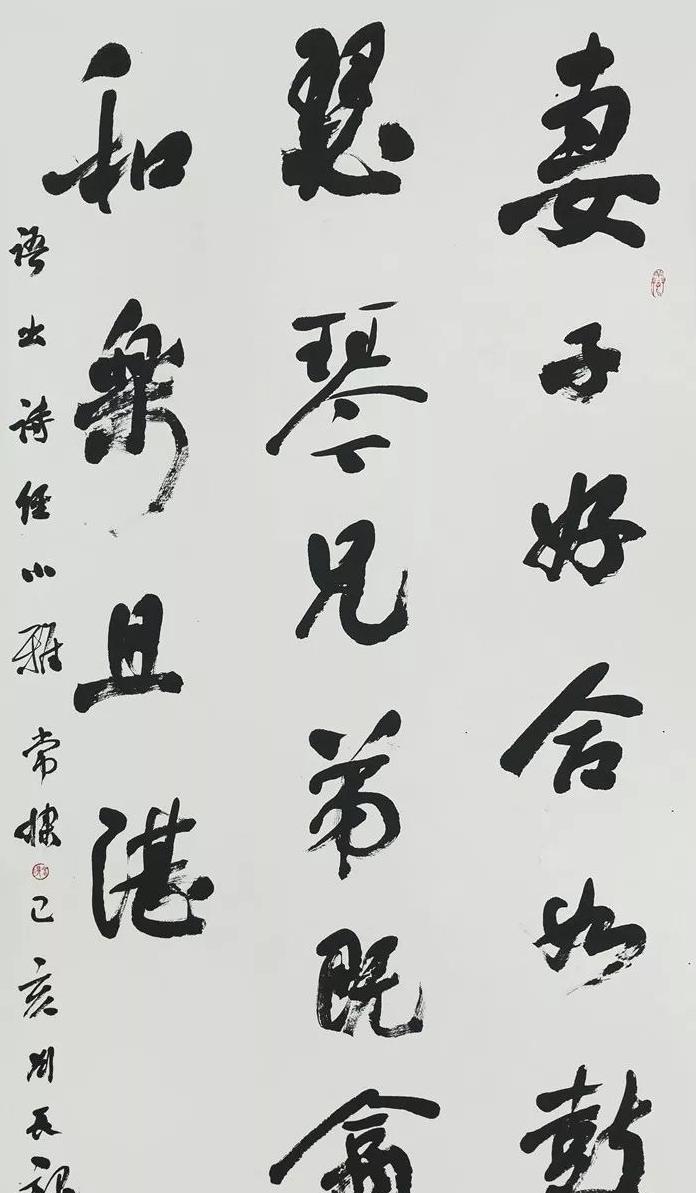 妻子好合如鼓
瑟琴兄弟既翕
和樂且湛
語出詩經小雅常棣己亥劉